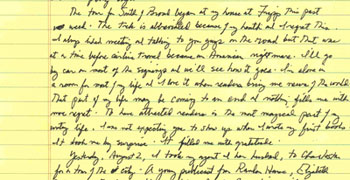 The tour for South of Broad began at my house at Fripp this past
week. The trek is abbreviated because of my health but I regret this.
I always liked meeting and talking to you guys on the road but that was
at a time before airline travel became an American nightmare. I'll go
by car on most of the signings and we'll see how it goes. I'm alone in
a room for most of my life and I love it when readers bring me news of the world.
That part of my life may be coming to an end and nothing fills me with
more regret. To have attracted readers is the most magical part of my
writing life. I was not expecting you to show up when I wrote my first books.
It took me by surprise. It filled me with gratitude.
Yesterday, August 2, I took my agent and her husband, to Charleston
for a tour of the city. A young publicist for Random House, Elizabeth